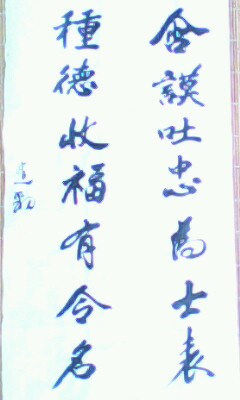 含謨吐忠為士表
種德收福有令名